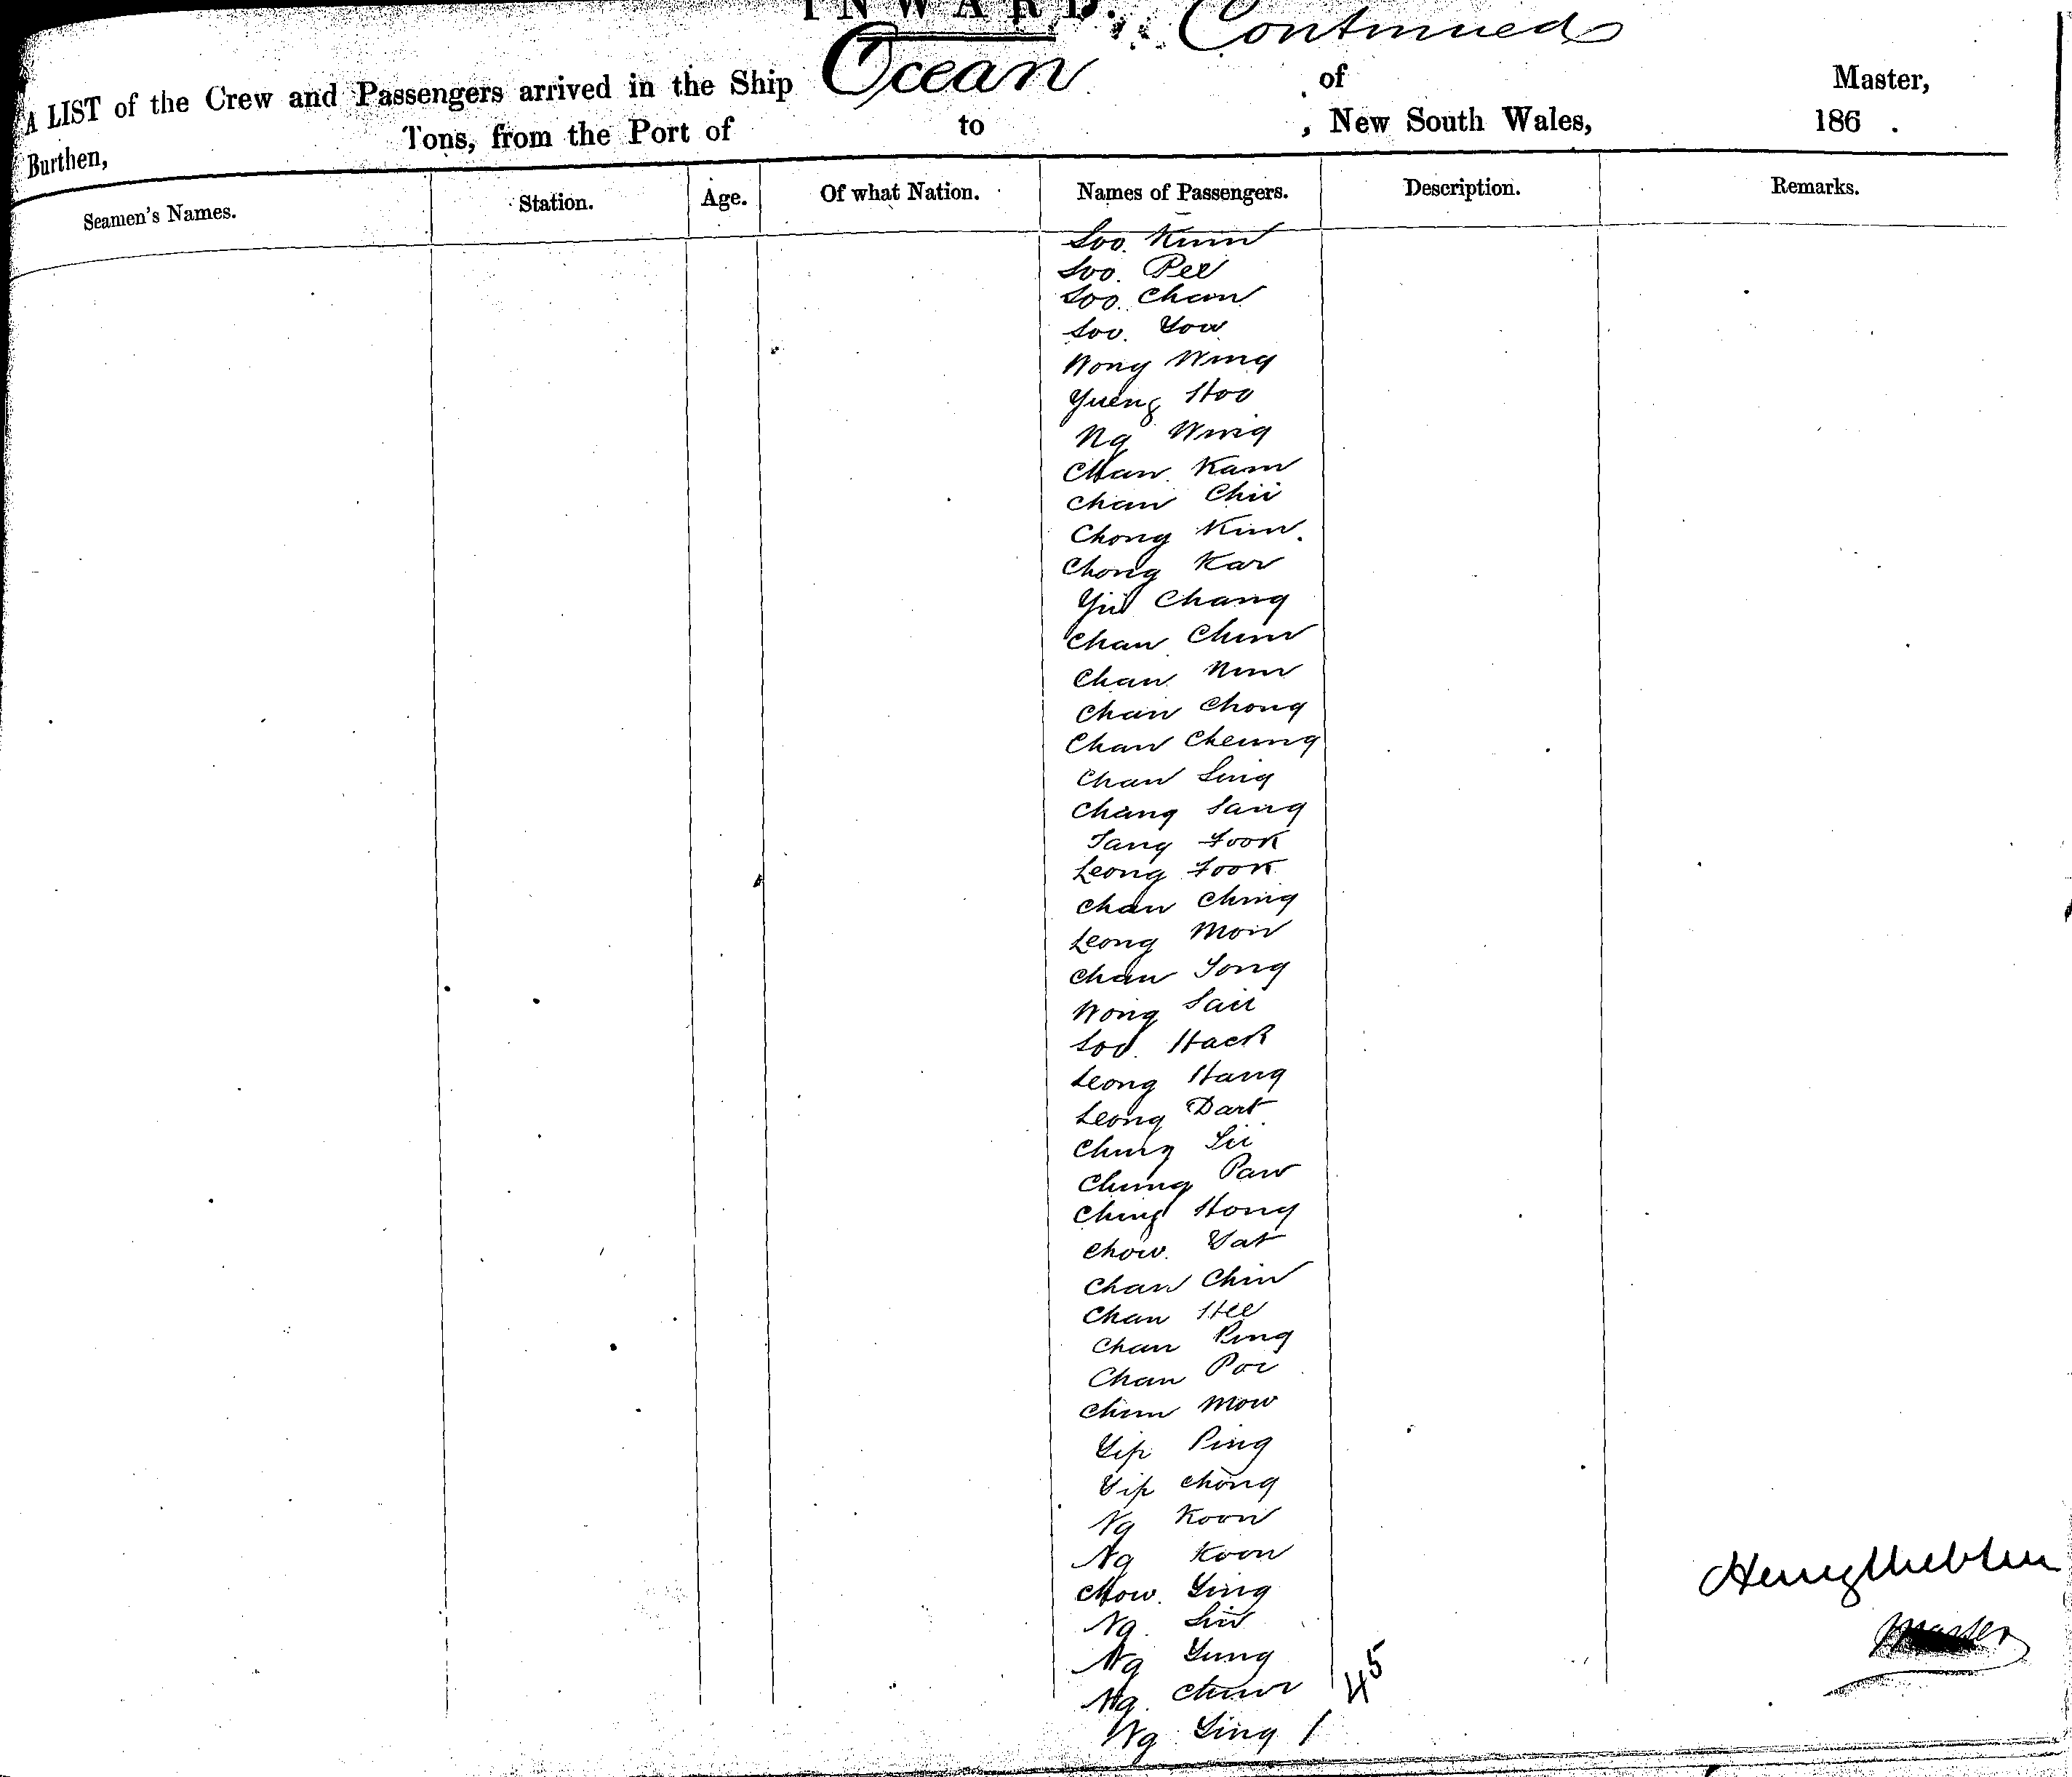 INWARD. Continued
A LIST of the Crew and Passengers arrived in the Ship Ocean of Master,
Burthen, Tons, from the Port of to , New South Wales, 186 .
Seamen's Names. Station. Age. Of what Nation. Names of Passengers. Description. Remarks.
Soo. Kum
Soo. Pee
Soo. Chan
Soo. You
Wong Wing
Yueng Hoo
Ng Wing
Chan Kam
Chan Chii
Chong Kim.
Chong Kar
Yii Chang
Chan Chim
Chan Num
Chan Chong
Chan Cheung
Chan Sing
Chang Sang
Tang Fook
Leong Fook
Chan Ching
Leong Mow
Chan Tong
Wong Saii
Soo. Hack
Leong Hang
Leong Dart
Chung Sii
Chung Paw
Ching Hong
Chow. Yat
Chan Chin
Chan Hee
Chan Ping
Chan Poi
Chun Mow
Yip Ping
Yip Chong
Ng Koon
Ng Koon
Chow. Ying
Ng. Sin
Ng Yung
Ng. Chun
Ng Ying /
45
Henry
Master